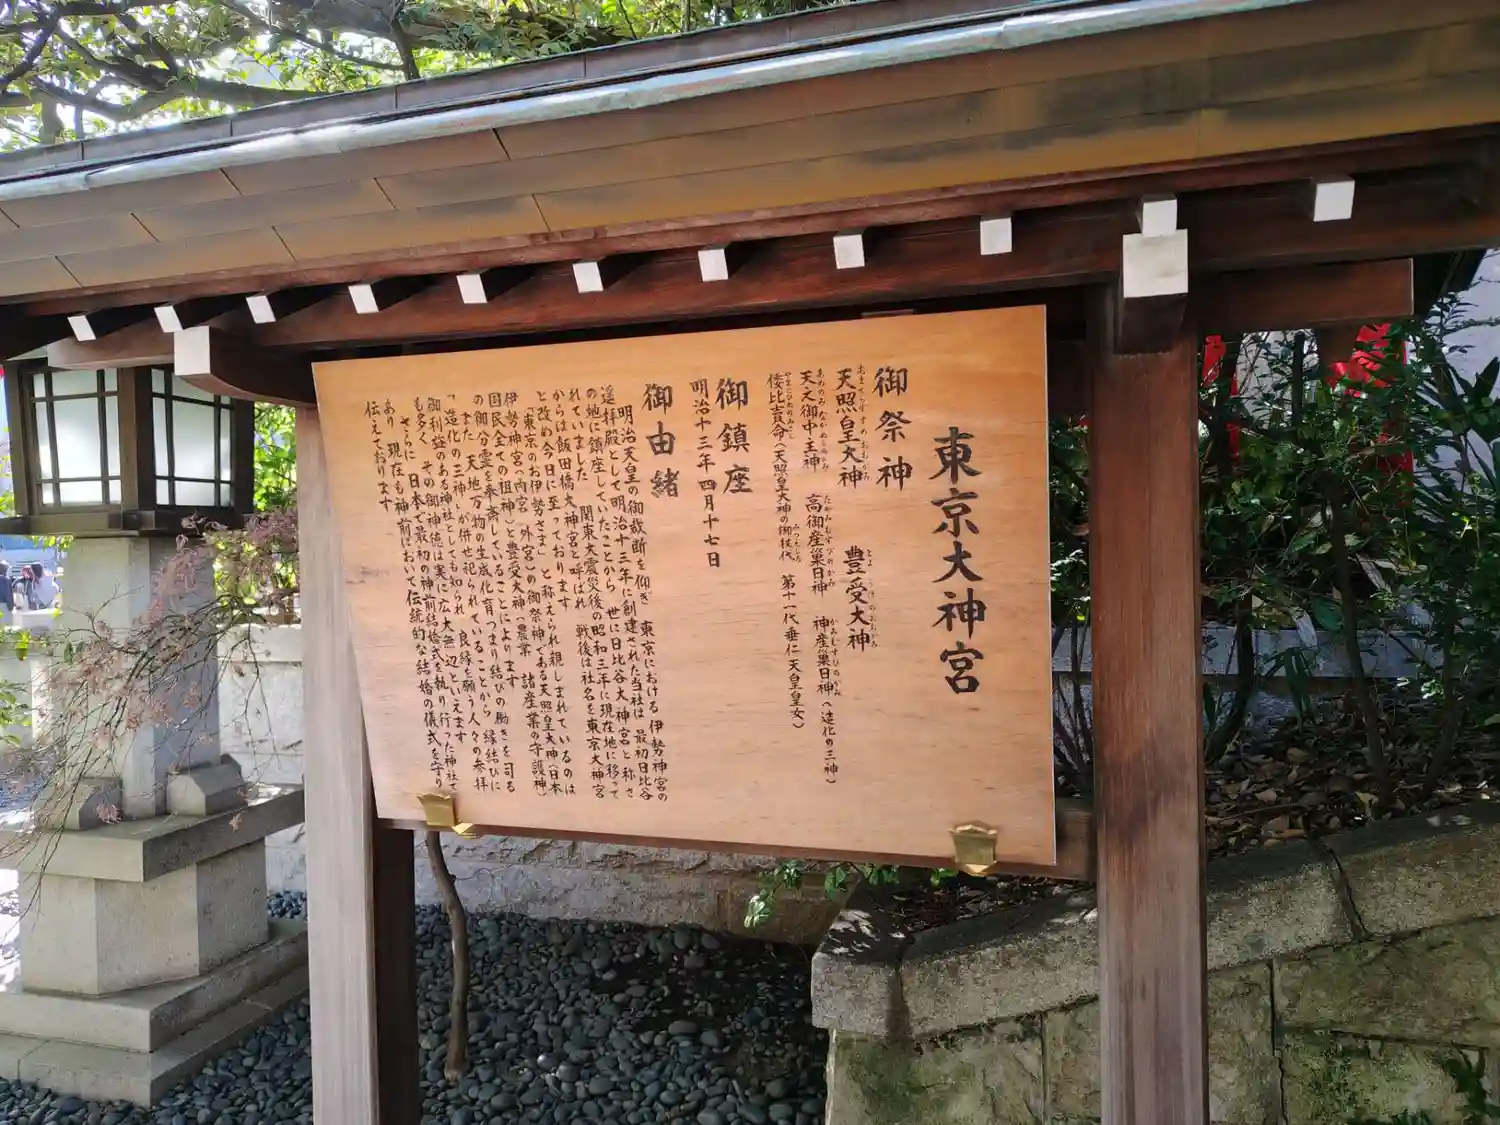 東京大神宮
御祭神
天照皇大神 豊受大神
天之御中主神 高御産巣日神 神産巣日神(造化の三神)
倭比賣命(天照皇大神の御杖代 第十一代垂仁天皇皇女)
御鎮座
明治十三年四月十七日
御由緒
明治天皇の御裁断を仰ぎ 東京における伊勢神宮の
遥拝殿として明治十三年に創建された当社は 最初日比谷
の地に鎮座していたことから 世に日比谷大神宮と称さ
れていました 関東大震災後の昭和三年に現在地に移って
からは飯田橋大神宮と呼ばれ 戦後は社名を東京大神宮
と改め今日に至っております
「東京のお伊勢さま」と称えられ親しまれているのは
伊勢神宮(内宮 外宮)の御祭神である天照皇大神(日本
国民全ての祖神)と豊受大神(農業 諸産業の守護神)
の御分霊を奉斎していることによります
また 天地万物の生成化育つまり結びの働きを司る
「造化の三神」が併せ祀られていることから 縁結びに
御利益のある神社としても知られ 良縁を願う人々の参拝
も多く その御神徳は実に広大無辺といえます
さらに 日本で最初の神前結婚式を執り行った神社で
あり 現在も神前において伝統的な結婚の儀式を守り
伝えております